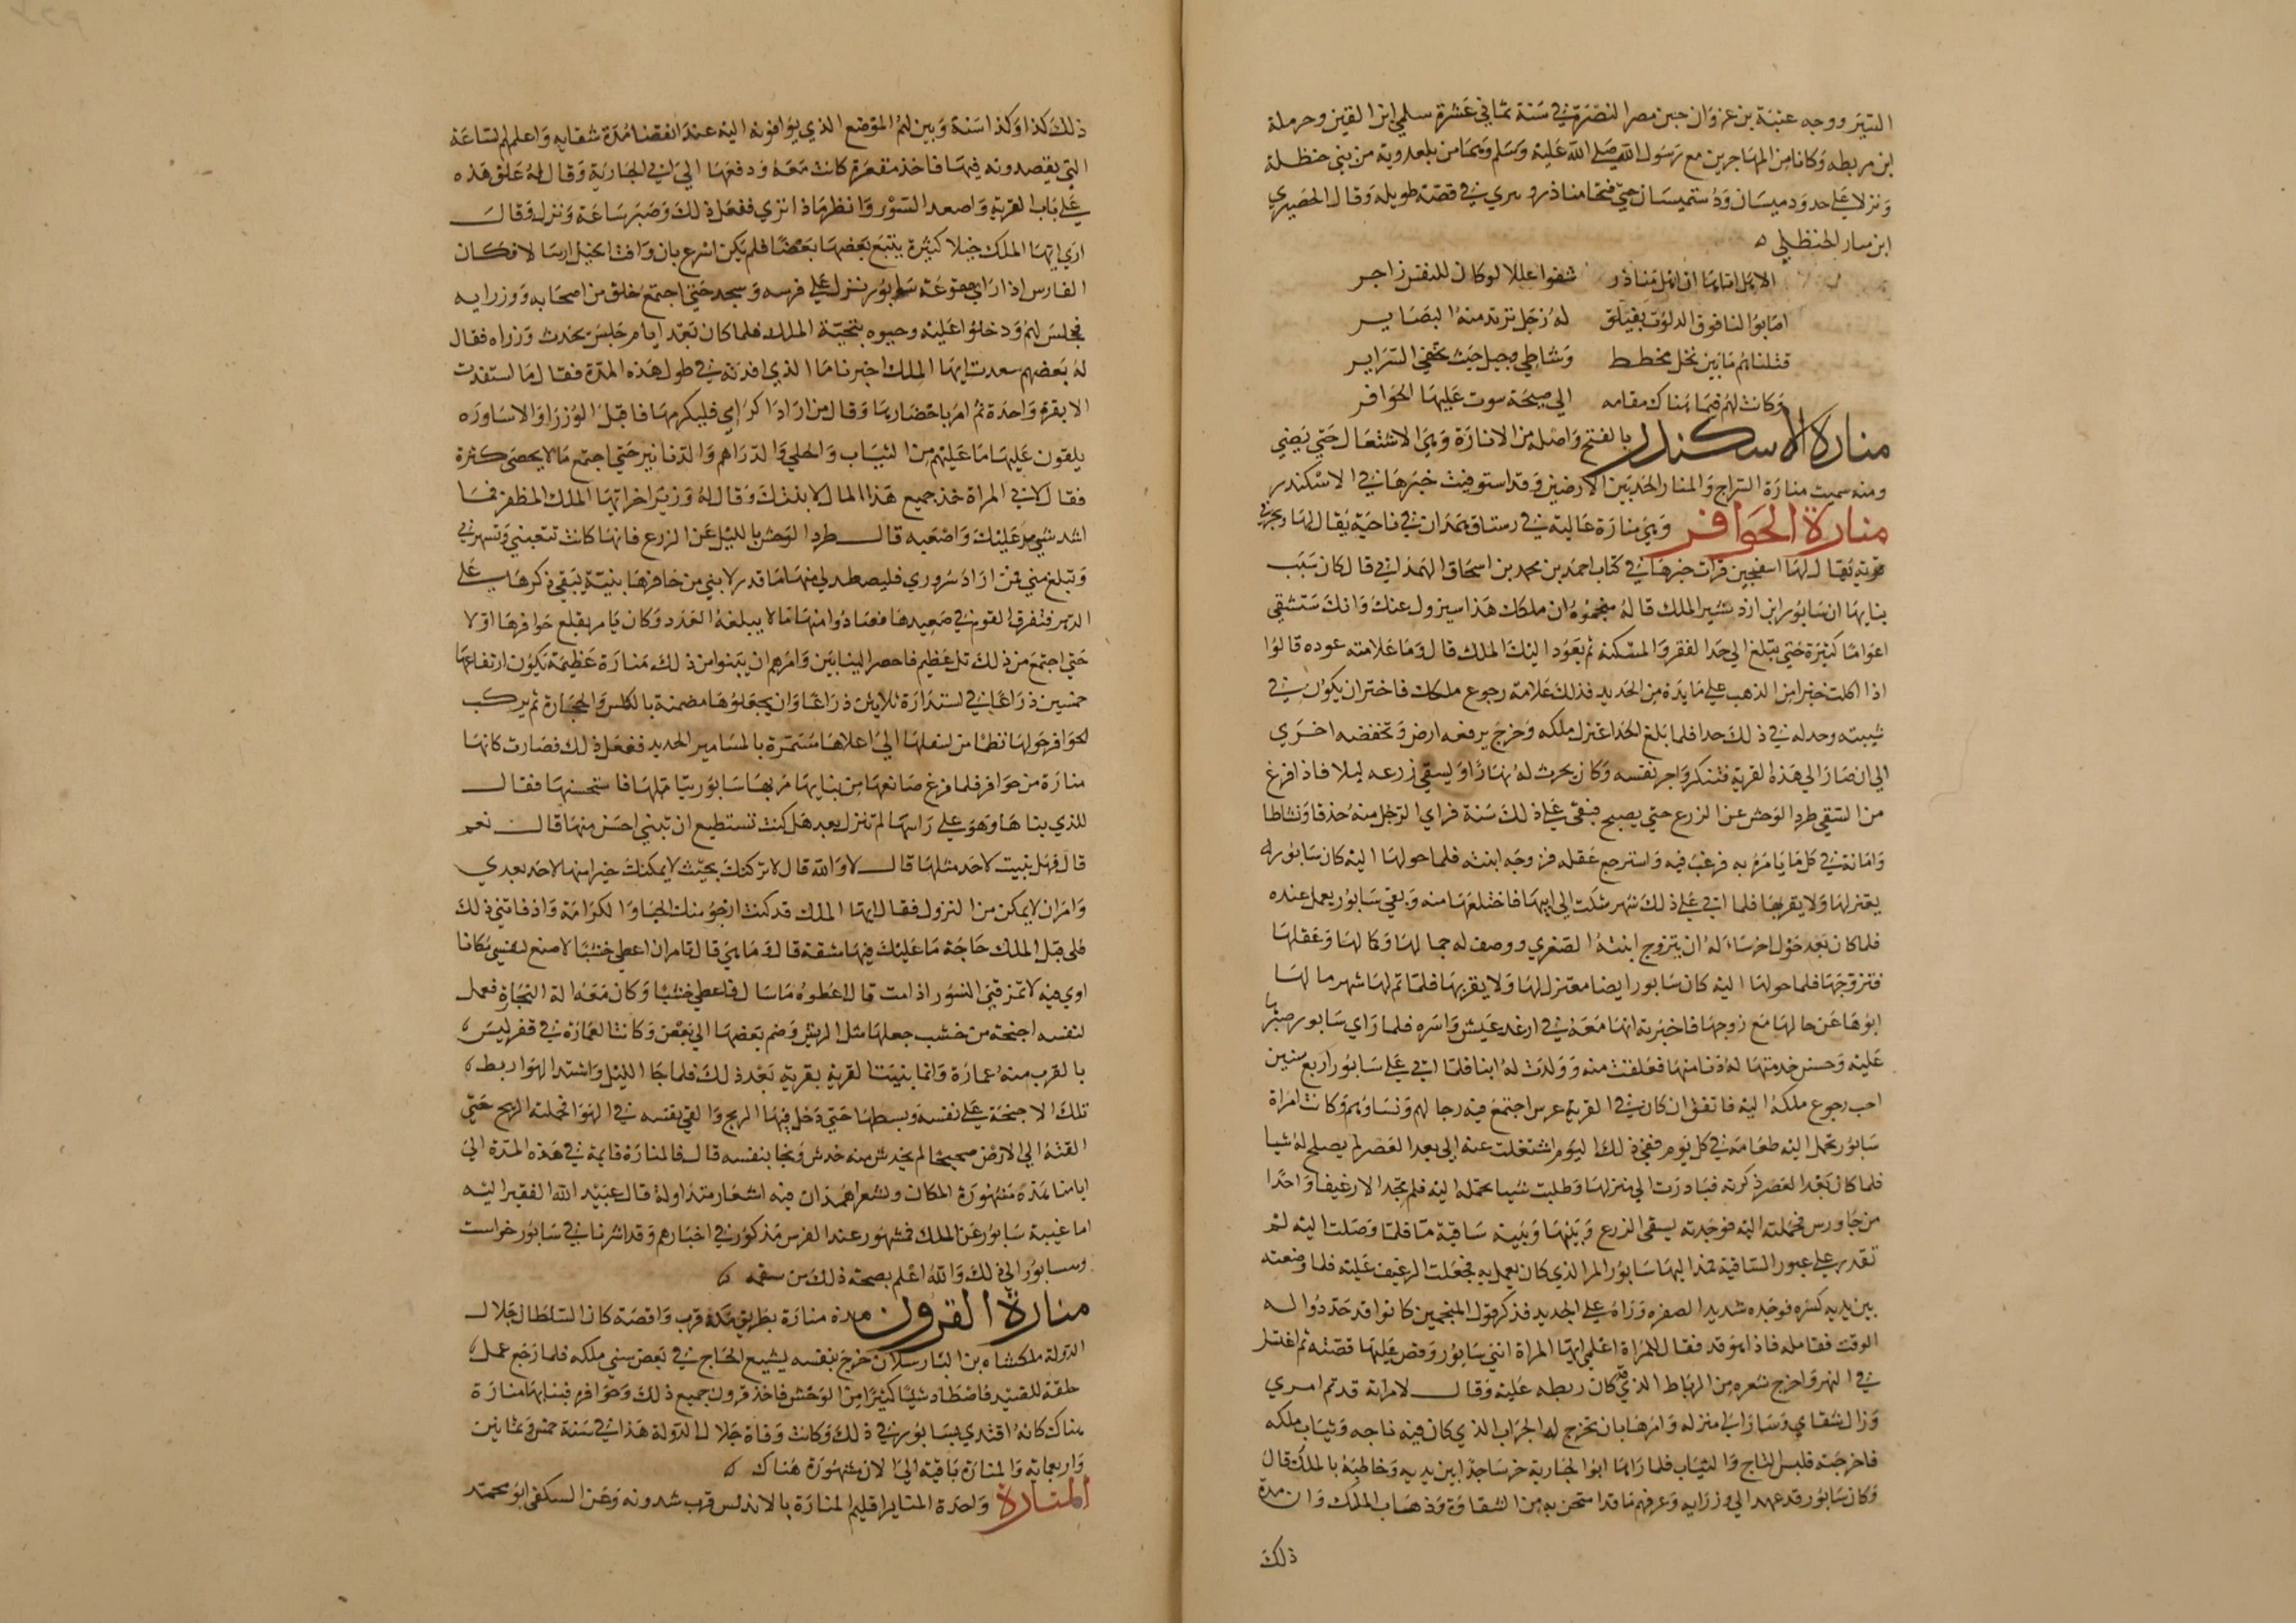 التيتر ووجه عتبة بن غزوان حين مصر البصرة في سنة ثماني عشرة سلمي ابن القين وحرملة
ابن مريطه وكانا من المهاجرين مع رسول الله صلي الله عليه وسلم وهما من بلعدوية من بني حنظلة
ونزلا علي حدود ميسان ودستميسان حتي فتحا مناذر و تيري في قصة طويله وقال الحصيري
ابن نيار الحنظلي ه
الا هل اتاها ان اهل مناذر شفوا غللا لو كان للنفس زاجر
اصابوا لنا فوق الدلوث بفيلق له زجل ترتد منه البصاير
قتلناهم ما بين نخل مخطط وشاطي دجيل حيث تخفي السراير
وكانت لهم فيما هناك مقامه الي صيحة سوت عليها الحوافر
منارة الاسكندر بالفتح واصله من الانارة وهي الاشتعال حتي يضي
ومنه سميت منارة السراج والمنار الحد بين الارضين وقد استوفيت خبرها في الاسكندر
منارة الحوافر وهي منارة عالية في رستاق همذان في ناحية يقال لها ونجر في
قرية يقال لها اسفجين قرات خبرها في كتاب احمد بن محمد بن اسحاق الهمذاني قال كان سبب
بنايها ان سابور ابن ازدشير الملك قال له منجموه ان ملكك هذا سيزول عنك وانك ستشقي
اعواما كثيرة حتي تبلغ الي حد الفقر والمسكنه ثم يعود اليك الملك قال وما علامته عوده قالوا
اذا اكلت خبزا من الذهب علي مايدة من الحديد فذلك علامة رجوع ملكك فاختر ان يكون في
شيبته وحد له في ذلك حدا فلما بلغ الحد اعتزل ملكه وخرج يرفعه ارض وتخفضه اخري
الي ان صار الي هذه القرية فتنكر واجر نفسه وكان يحرث له نهارا ويسقي زرعه ليلا فاذا فرغ
من السقي طرد الوحش عن الزرع حتي يصبح فبقي علي ذلك سنة فراي الرجل منه حذقا ونشاطا
وامانة في كل ما يامره به فرغب فيه واسترجع عقله فزوجه ابنته فلما حولها اليه كان سابور
يعتزلها ولا يقربها فلما اتي علي ذلك شهر شكت الي ابيها فاختلعها منه وبقي سابور يعمل عنده
فلما كان بعد حول اخر ساله ان يتزوج ابنته الصغري ووصف له جمالها وكمالها وعقلها
فتزوجها فلما حولها اليه كان سابور ايضا معتزل لها ولا يقربها فلما تم لها شهر سالها
ابوها عن حالها مع زوجها فاخبرته انها معه في ارغد عيش واسره فلما راي سابور صبرها
عليه وحسن خدمتها له دنا منها فعلقت منه وولدت له ابنا فلما اتي علي سابور اربع سنين
احب رجوع ملكه اليه فاتفق ان كان في القرية عرس اجتمع فيه رجالهم ونساوهم وكانت امراة
سابور تحمل اليه طعامه في كل يوم ففي ذلك اليوم اشتغلت عنه الي بعد العصر لم يصلح له شيا
فلما كان بعد العصر ذكرته فبادرت الي منزلها وطلبت شيا تحمله اليه فلم تجد الا رغيفا واحدا
من جاورس فحملته اليه فوجدته يسقي الزرع وبينها وبينه ساقية ما فلما وصلت اليه لم
تقدر علي عبور الساقية فمد اليها سابور المر الذي كان يعمل به فجعلت الرغيف عليه فلما وضعته
بين يديه كسره فوجده شديد الصفره وراه علي الحديد فذكر قول المنجمين كانوا قد حددوا له
الوقت فقامله فاذا هو قد فقال للمراة اعلمي ايتها المراة انني سابور وقص عليها قصته ثم اغتسل
في النهر واخرج شعره من الرباط الذي كان ربطه عليه وقال لامراته قد تم امري
وزال شقاي وسار الي منزله وامرها بان تخرج له الجراب الذي كان فيه تاجه وثياب ملكه
فاخرجته فلبس التاج والثياب فلما راه ابو الجارية خر ساجدا بين يديه وخاطبه بالملك قال
وكان سابور قد عهد الي وزرايه وعرفهم ما قد امتحن به من الشقاوة وذهاب الملك وان مدة
ذلك
ذلك كذا وكذا سنة وبين لهم الموضع الذي يوافونه اليه عند انقضا مدة شقايه واعلمهم الساعة
التي يقصدونه فيها فاخذ مقرعة كانت معه ودفعها الي ابي الجارية وقال له علق هذه
علي باب القرية واصعد السور وانظر ماذا تري ففعل ذلك وصبر ساعة ونزل وقال
اري ايها الملك خيلا كثيرة يتبع بعضها بعضا فلم يكن اسرع بان وافت الخيل ارسالا فكان
الفارس اذا راي مقرعة سابور نزل علي فرسه وسجد حتي اجتمع خلق من اصحابه ووزرايه
فجلس لهم ودخلوا عليه وحيوه بتحية الملك فلما كان بعد ايام جلس يحدث وزراه فقال
له بعضهم سعدت ايها الملك اخبرنا ما الذي افدته في طول هذه المدة فقال ما استفدت
الا بقرة واحدة ثم امر باحضارها وقال من اراد اكرامي فليكرمها فاقبل الوزرا والاساوره
يلقون عليها ما عليهم من الثياب والحلي والدراهم والدنانير حتي اجتمع ما لا يحصي كثرة
فقال لابي المراة خذ جميع هذا المال لابنتك وقال له وزير اخر ايها الملك المظفر فما
اشد شي مر عليك واصعبه قال طرد الوحش بالليل عن الزرع فانها كانت تتعبني وتسهرني
وتبلغ مني فمن اراد سروري فليصطد لي منها ما قدر لابني من حافرها بنية يبقي ذكرها علي
الدهر فتفرق القوم في صعيدها فعادوا منها ما لا يبلغه العدد وكان يامر بقلع حوافرها اولا
حتي اجتمع من ذلك تل عظيم فاحصر البنايين وامرهم ان يبنوا من ذلك منارة عظيمة يكون ارتفاعها
خمسين ذراعا في استدارة ثلاثين ذراعا وان يجعلوها مضمنة بالكلس والحجارة ثم يركب
الحوافر حولها نظما من اسفلها الي اعلاها مستمرة بالمسامير الحديد ففعل ذلك فصارت كانها
منارة من حوافر فلما فرغ صانعها من بنايها مر بها سابور يتاملها فاستحسنها فقال
للذي بناها وهو علي راسها لم ينزل بعد هل كنت تستطيع ان تبني احسن منها قال نعم
قال فهل بنيت لاحد مثلها قال لا والله قال لا تركتك بحيث لا يمكنك خيرا منها لاحد بعدي
وامر ان لا يمكن من النزول فقال ايها الملك قد كنت ارجو منك الحبا والكرامة واذ فاتني ذلك
فلي قبل الملك حاجة ما عليك فيها مشقة قال وما هي قال تامر ان اعطي خشبا لاصنع لنفسي مكانا
اوي فيه لا تمزقني النسور اذا مت قال اعطوه ما سال فاعطي خشبا وكان معه الة النجارة فعمل
لنفسه اجنحة من خشب جعلها مثل الريش وضم بعضها الي بعض وكانت العمارة في قفر ليس
بالقرب منه عمارة وانما بنيت القرية بقربه بعد ذلك فلما جا الليل واشتد الهوا ربط
تلك الاجنحة علي نفسه وبسطها حتي دخل فيها الريح والقي نفسه في الهوا فحملته الريح حتي
القته الي الارض صحيحا لم يخدش منه خدش ونجا بنفسه قال فالمنارة قايمة في هذه المدة الي
ايامنا هذه مشهورة المكان ولشعرا همذان فيه اشعار متداولة قال عبيد الله الفقير اليه
اما غيبة سابور عن الملك فمشهور عند الفرس مذكور في اخبارهم وقد اشرنا في سابور خواست
ونيسابور الي ذلك والله اعلم بصحة ذلك من سقمه ه
منارة القرون هذه منارة بطريق مكة قرب واقصة كان السلطان جلال
الدولة ملكشاه بن الب ارسلان خرج بنفسه يشيع الحاج في بعض سني ملكه فلما رجع عمل
حلقة للقنيد فاصطاد شيا كثيرا من الوحش فاخذ قرون جميع ذلك وحوافره فبنا بها منارة
هناك كانه اقتدي بسابور في ذلك وكانت وفاة جلال الدولة هذا في سنة خمس وثمانين
واربعماية والمنارة باقية الي الان مشهورة هناك ه
المنارة واحدة المناير اقليم المنارة بالاندلس قرب شدونه وعن السلفي ابو محمد